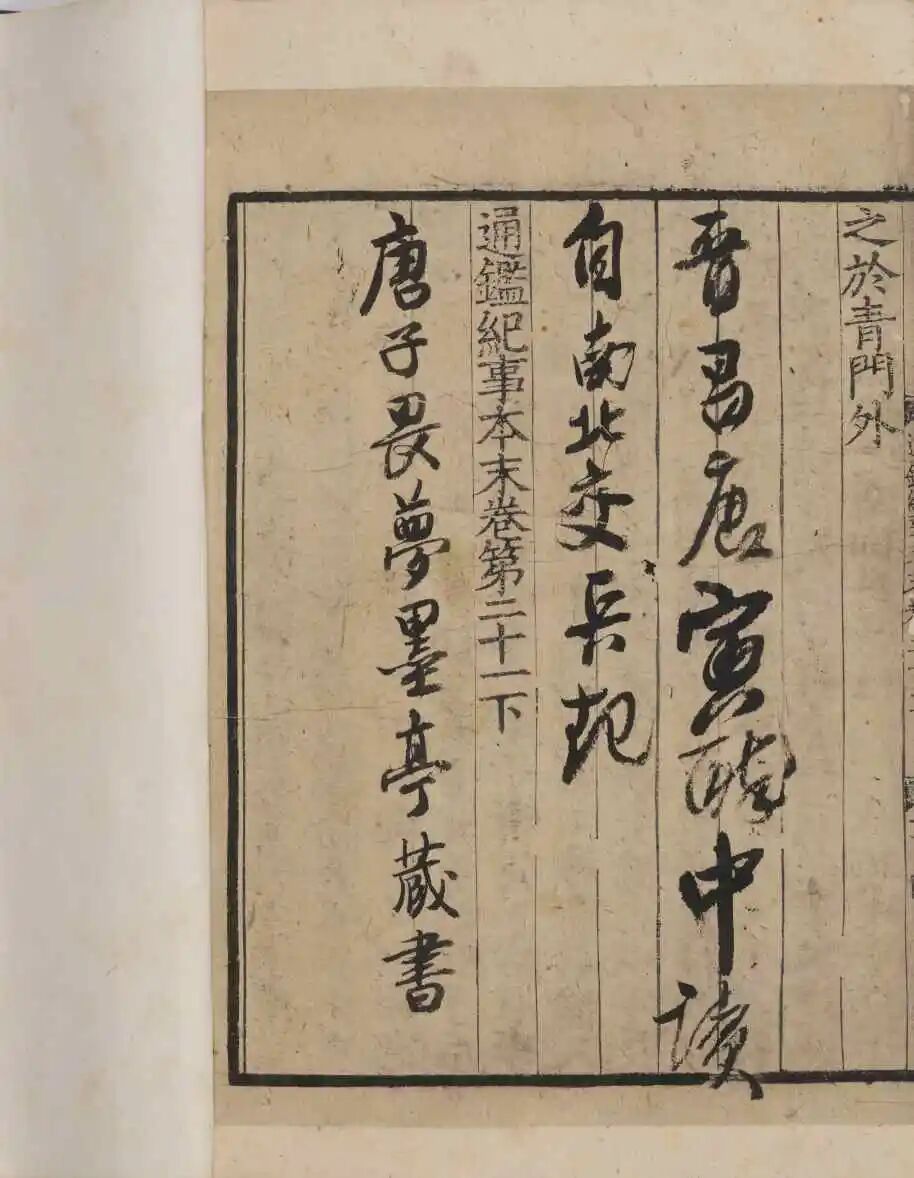 之於青門外
晉昌唐寅醉中讀
自南北交兵起
通鑑紀事本末卷第二十一下
唐子畏夢墨亭藏書